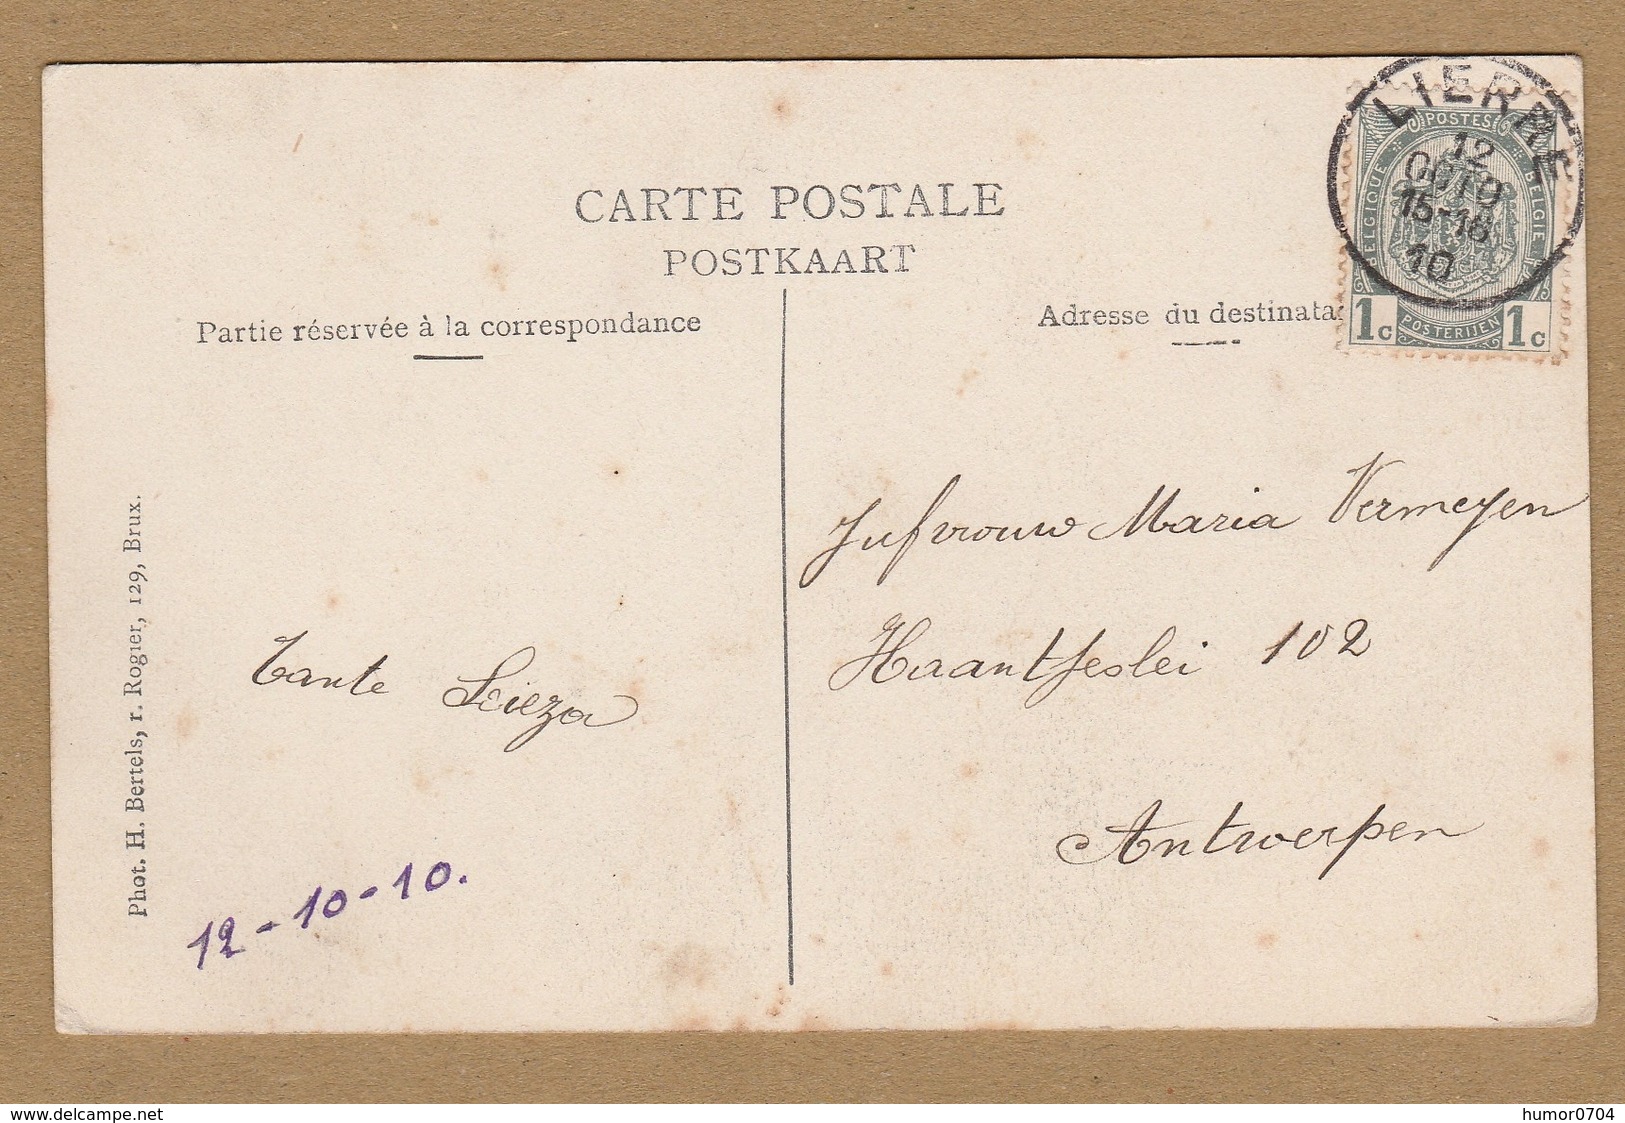 CARTE POSTALE
POSTKAART
Partie réservée à la correspondance
Adresse du destinata
LIERRE
12
OCT
15-16
10
POSTES
BELGIQUE
BELGIE
POSTERIJEN
1c 1c
Jufvrouw Maria Vermeyen
Haantjeslei 102
Antwerpen
Tante
12-10-10.
Phot. H. Bertels, r. Rogier, 129, Brux.
www.delcampe.net
humor0704